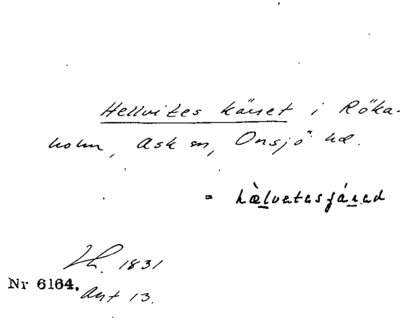 Hellvites käret i Röka-
holm, Ask sn, Onsjö hd.
= hælvetesjáred
1831
Nr 6164.
Ant 13.